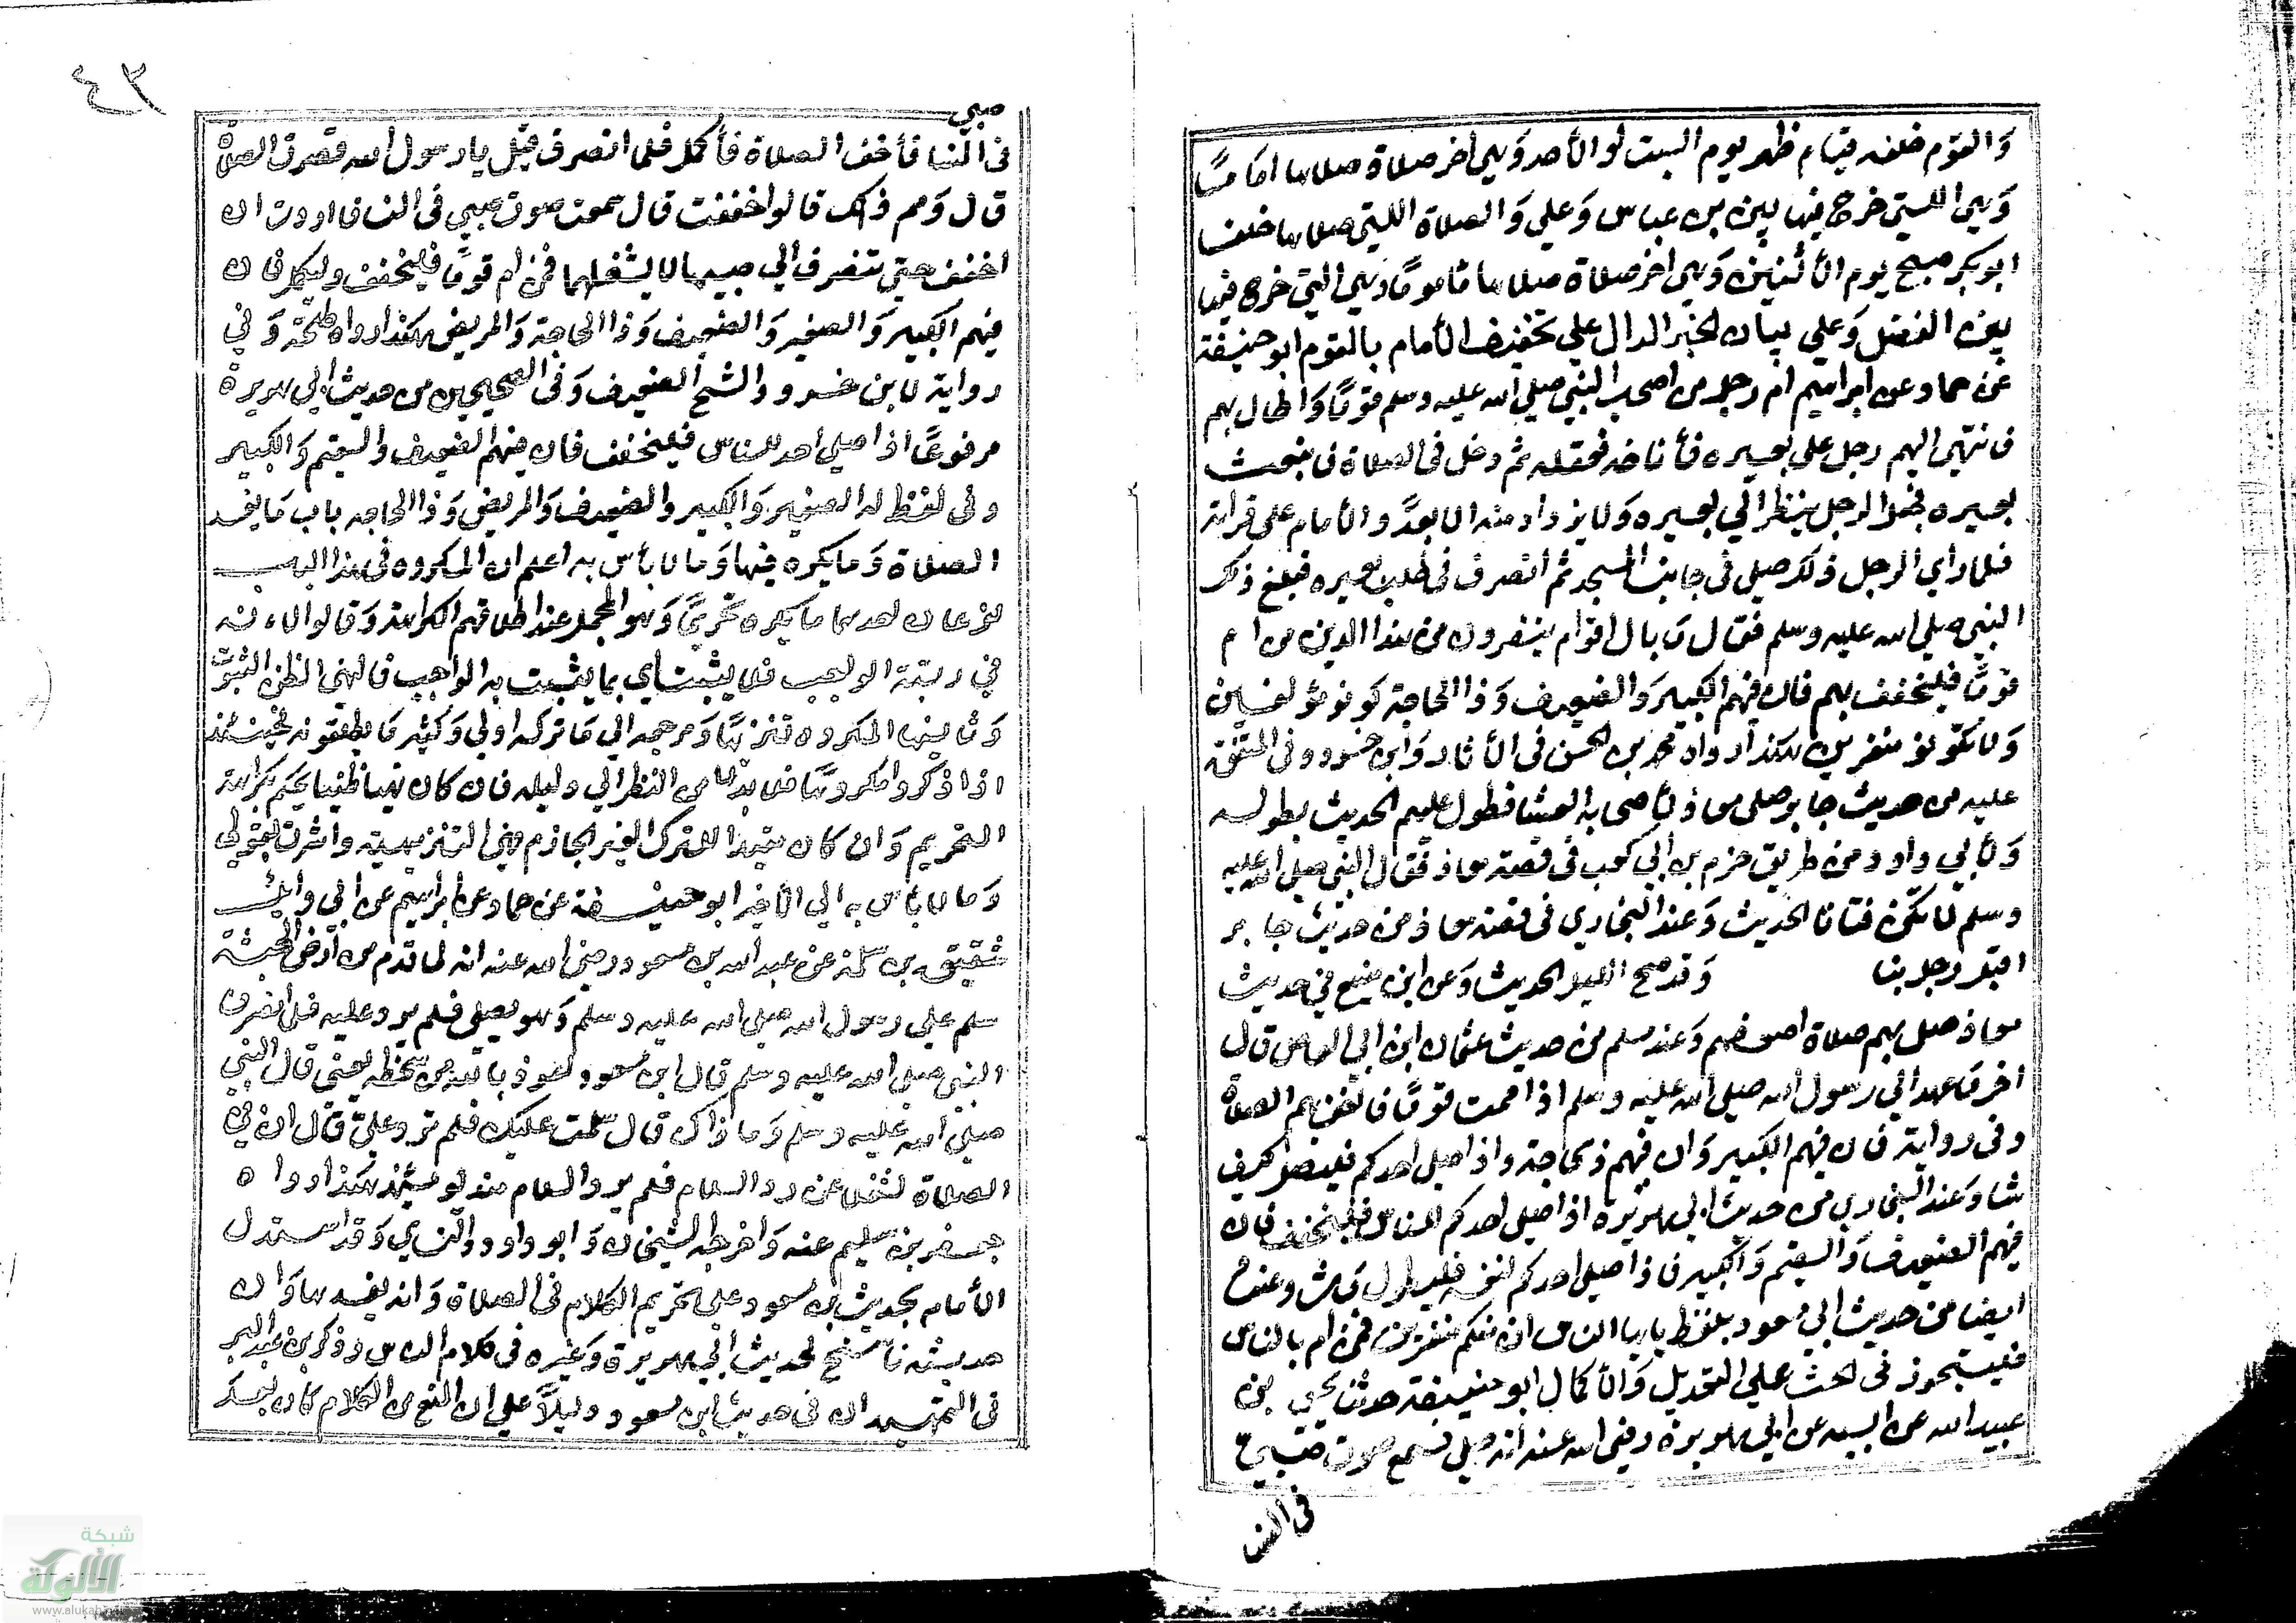 وَالقوم خلفه قيام ظهر يوم السبت لو الأحد وَهي اخر صلاة صلاها امامًا
وَهي اللتي خرج فيها بين بن عباس وَعلي وَالصلاة اللتي صلاها خلف
ابو بكر صبح يوم الأثنين وَهي اخر صلاة صلاها مأمومًا وهي التي خرج فيها
بين الفضل وَعلي بيان الخبر الدال علي تخفيف الأمام بالقوم ابو حنيفة
عن حماد عن ابراهيم ام رجل من اصحاب النبي صلي الله عليه وسلم قومًا وَاطال بهم
فانتهي اليهم رجل علي بعيره فأناخه فعقله ثم دخل في الصلاة فانبعث
بعيره فجعل الرجل ينظر الي بعيره وَلا يزداد منه الا بعدًا والأمام علي قرائته
فلما رأي الرجل ذلك صلي في جانب المسجد ثم انصرف في طلب بعيره فبلغ ذلك
النبي صلي الله عليه وسلم فقال مَا بال اقوام ينفرون من هذا الدين من ام
قومًا فليخفف بهم فان فيهم الكبير وَالضعيف وَذا الحاجة كونو مؤلفين
وَلا تكونو منفرين هكذا رواه محمد بن الحسن في الأثار وَابن خسرو وفي المتفق
عليه من حديث جابر صلي معاذ لأصحابه العشا فطول عليهم الحديث بطوله
وَلأبي داود من طريق حزم بن ابي كعب في قصة معاذ فقال النبي صلي الله عليه
وسلم لا تكن فتانا الحديث وَعند البخاري في قصة معاذ من حديث جابر
اقبل رجل بنا وَقد جنح الليل الحديث وَعن ابن منيع في حديث
معاذ صل بهم صلاة اضعفهم وَعند مسلم من حديث عثمان ابن ابي العاص قال
اخر مَا عهد الي رسول الله صلي الله عليه وسلم اذا اممت قومًا فاخفف بهم الصلاة
وفي رواية فان فيهم الكبير وَان فيهم ذي حاجة واذا صلي احدكم فليصل كيف
شا وَعند البخاري من حديث ابي هريرة اذا صلي احدكم للناس فليخفف فان
فيهم الضعيف وَالسقيم وَالكبير فاذا صلي احدكم لنفسه فليطول مَا شا وعنده
ايضا من حديث ابي مسعود بلفظ يايها الناس ان منكم منفرين فمن ام بالناس
فليتجوز في الحث علي التعديل وَالأكمال ابو حنيفة حدثنا يحيي بن
عبيد الله عن ابيه عن ابي هريرة رضي الله عنه انه صلي فسمع صوت صبي
في النسا
٣٤
صبي
في النسا فأخف الصلاة فأكمل فلما انصرف قيل يا رسول الله قصرت الصلاة
قال وَمم ذلك قالوا خففت قال سمعت صوت صبي في النسا فاردت ان
اخفف حتي تنصرف الي صبيها لا يشغلها فمن ام قومًا فليخفف وليكمل فان
فيهم الكبير وَالصغير وَالضعيف وَذا الحاجة وَالمريض هكذا رواه طلحة وَفي
رواية لابن خسرو والشيخ الضعيف وَفي الصحيحين من حديث ابي هريرة
مرفوعًا اذا صلي احد للناس فليخفف فان فيهم الضعيف والسقيم وَالكبير
وفي لفظ له الصغير وَالكبير والضعيف وَالمريض وَذا الحاجه باب مَا يفسد
الصلاة وَما يكره فيها وَما لا بأس به اعلم ان المكروه في هذا الباب
نوعان احدهما ما يكره تحريمًا وَهو المحمل عند اطلاقهم الكراهة وَقالوا لانه
في رتبة الواجب فلا يثبت اي بما يثبت به الواجب فالنهي الظني الثبوت
وَثانيهما المكروه تنزيهًا وَمرجعه الي مَا تركه اولي وَكثير مَا يطلقونه فحينئذ
اذا ذكروا مكروهًا فلا بد لنا من النظر الي دليله فان كان نهيا ظنيا يحكم بكراهة
التحريم وَان كان مفيدا للترك الغير الجازم فهي التنزيهية واشرت بقولي
وَما لا بأس به الي الأخير ابو حنيفة عن حماد عن ابراهيم عن ابي وايل
شقيق بن سلمة عن عبد الله بن مسعود رضي الله عنه انه لما قدم من أرض الحبشة
سلم علي رسول الله صلي الله عليه وسلم وَهو يصلي فلم يرد عليه فلما انصرف
النبي صلي الله عليه وسلم قال ابن مسعود اعوذ بالله من سخط نعمتي قال النبي
صلي الله عليه وسلم وَما ذاك قال سلمت عليك فلم ترد علي قال ان في
الصلاة لشغلا عن رد السلام فلم يرد السلام منذ يومئذ هكذا رواه
جعفر بن سليم عنه وَاخرجه الشيخان وَابو داود والنسائي وَقد استدل
الأمام بحديث بن مسعود علي تحريم الكلام في الصلاة وَانه يفسدها وَان
حديثه ناسخ لحديث ابي هريرة وَغيره في كلام الناس وذكر بن عبد البر
في التمهيد ان في حديث ابن مسعود دليلاً علي ان المنع من الكلام كان بعد
شبكة
الألوكة
www.alukah.net